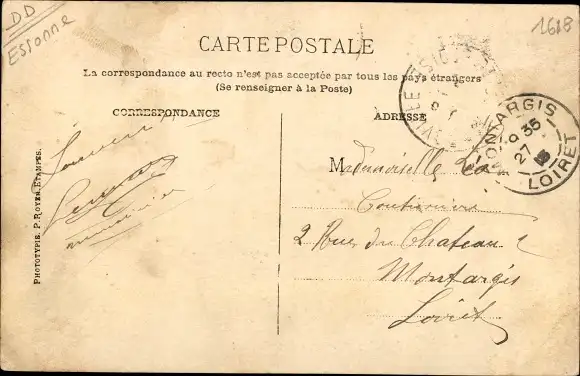 DD
Essonne
1618
CARTE POSTALE
La correspondance au recto n'est pas acceptée par tous les pays étrangers
(Se renseigner à la Poste)
CORRESPONDANCE
ADRESSE
MONTARGIS
9 35
27
LOIRET
Souvenir
PHOTOTYPIE P. ROYER, ETAMPES.
Mademoiselle Léa
Couturière
2 Rue du Chateau 2
Montargis
Loiret